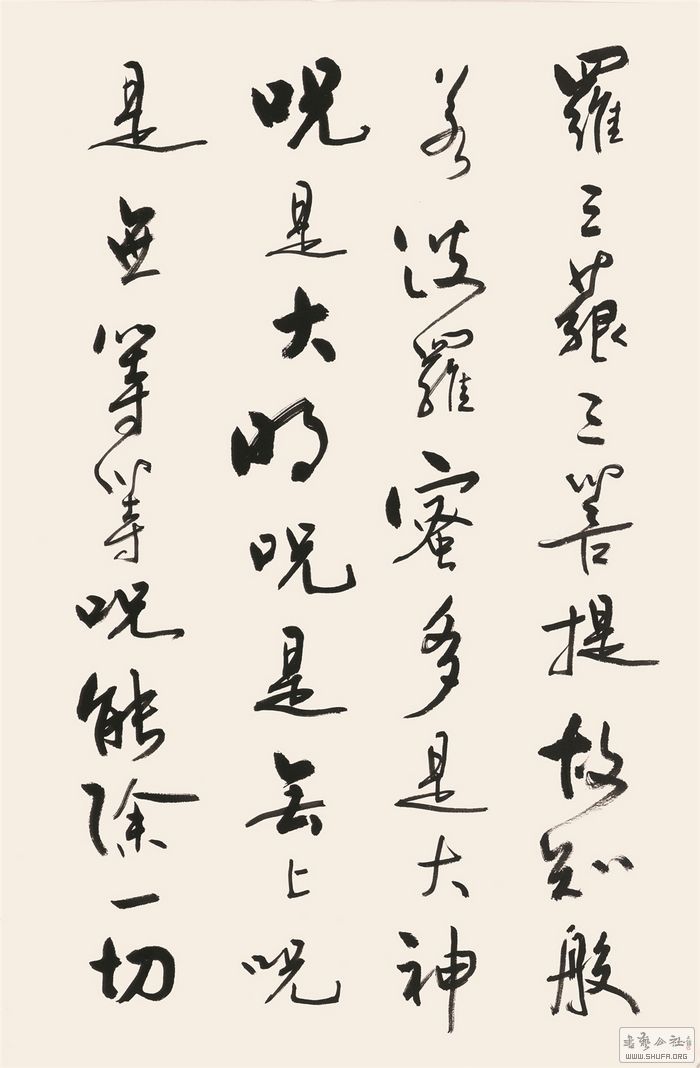 羅三藐三菩提故知般
若波羅蜜多是大神
呪是大明呪是無上呪
是無等等呪能除一切
書藝公社
WWW.SHUFA.ORG